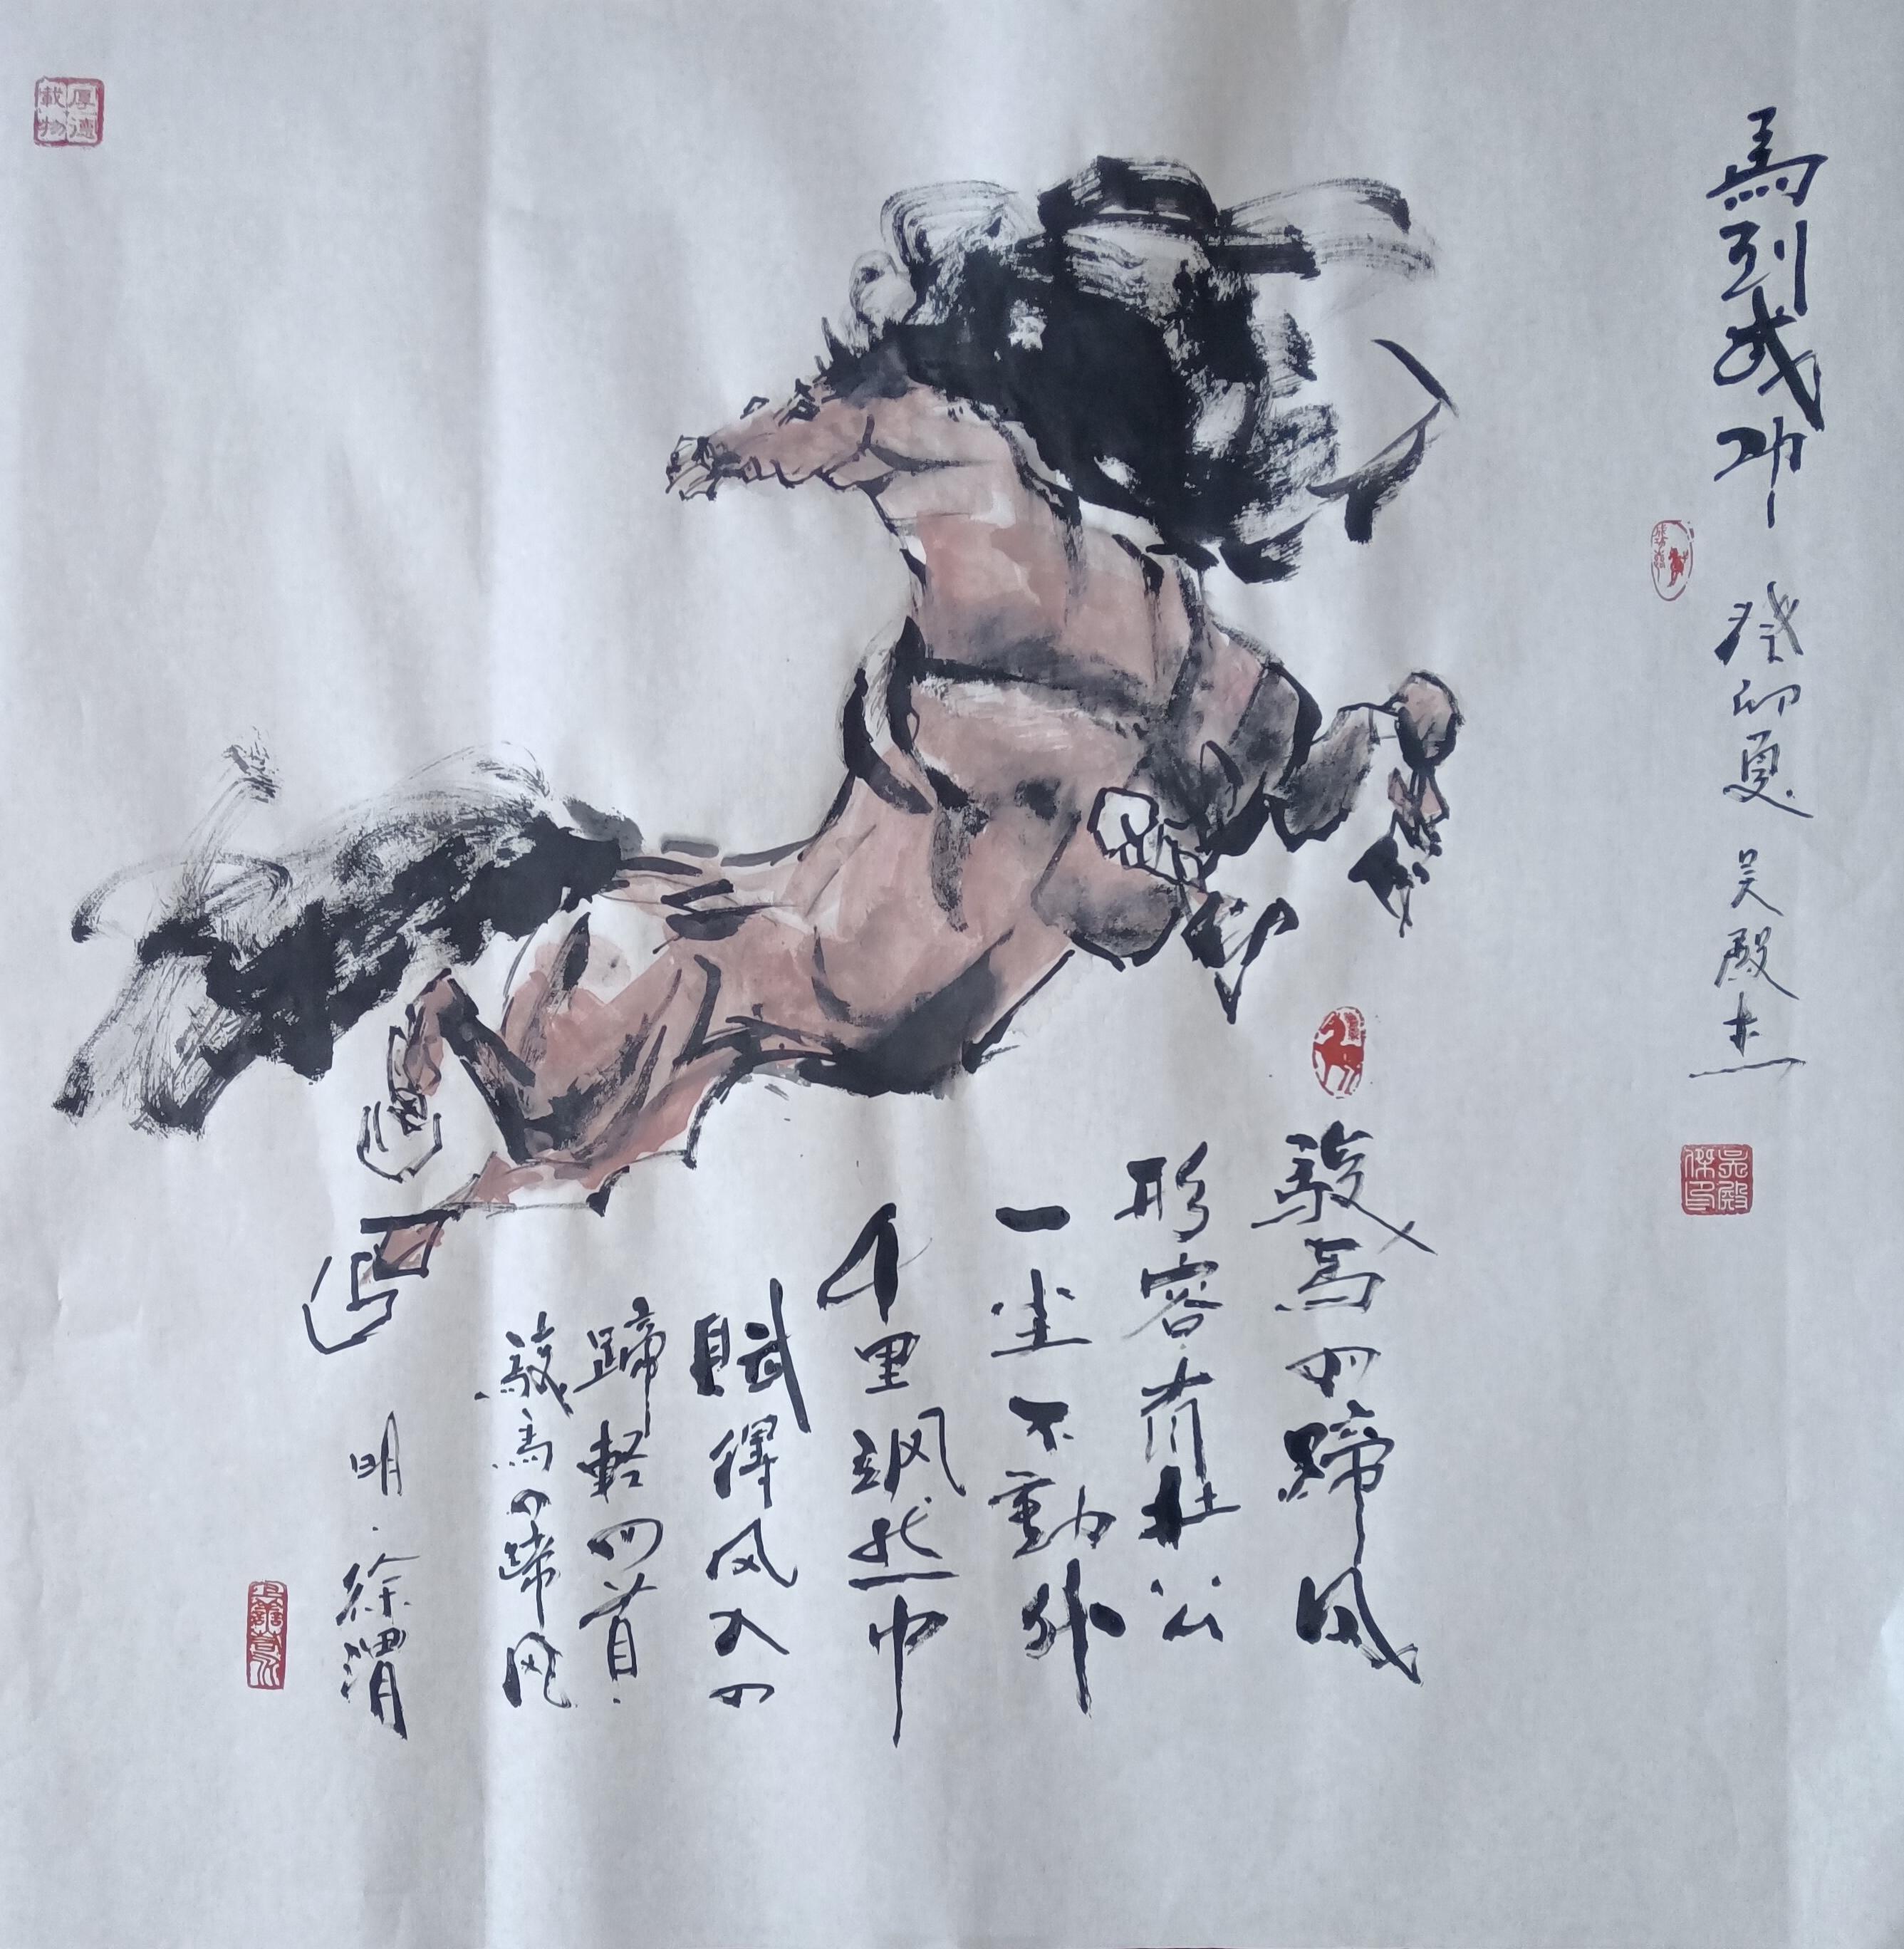 馬到成功 癸卯夏 吴殿杰
駿馬四蹄风
形容有杜公
一尘不動外
千里飒然中
賦得风入四
蹄輕四首·
駿馬四蹄风
明·徐渭
厚德載物
吳殿傑印